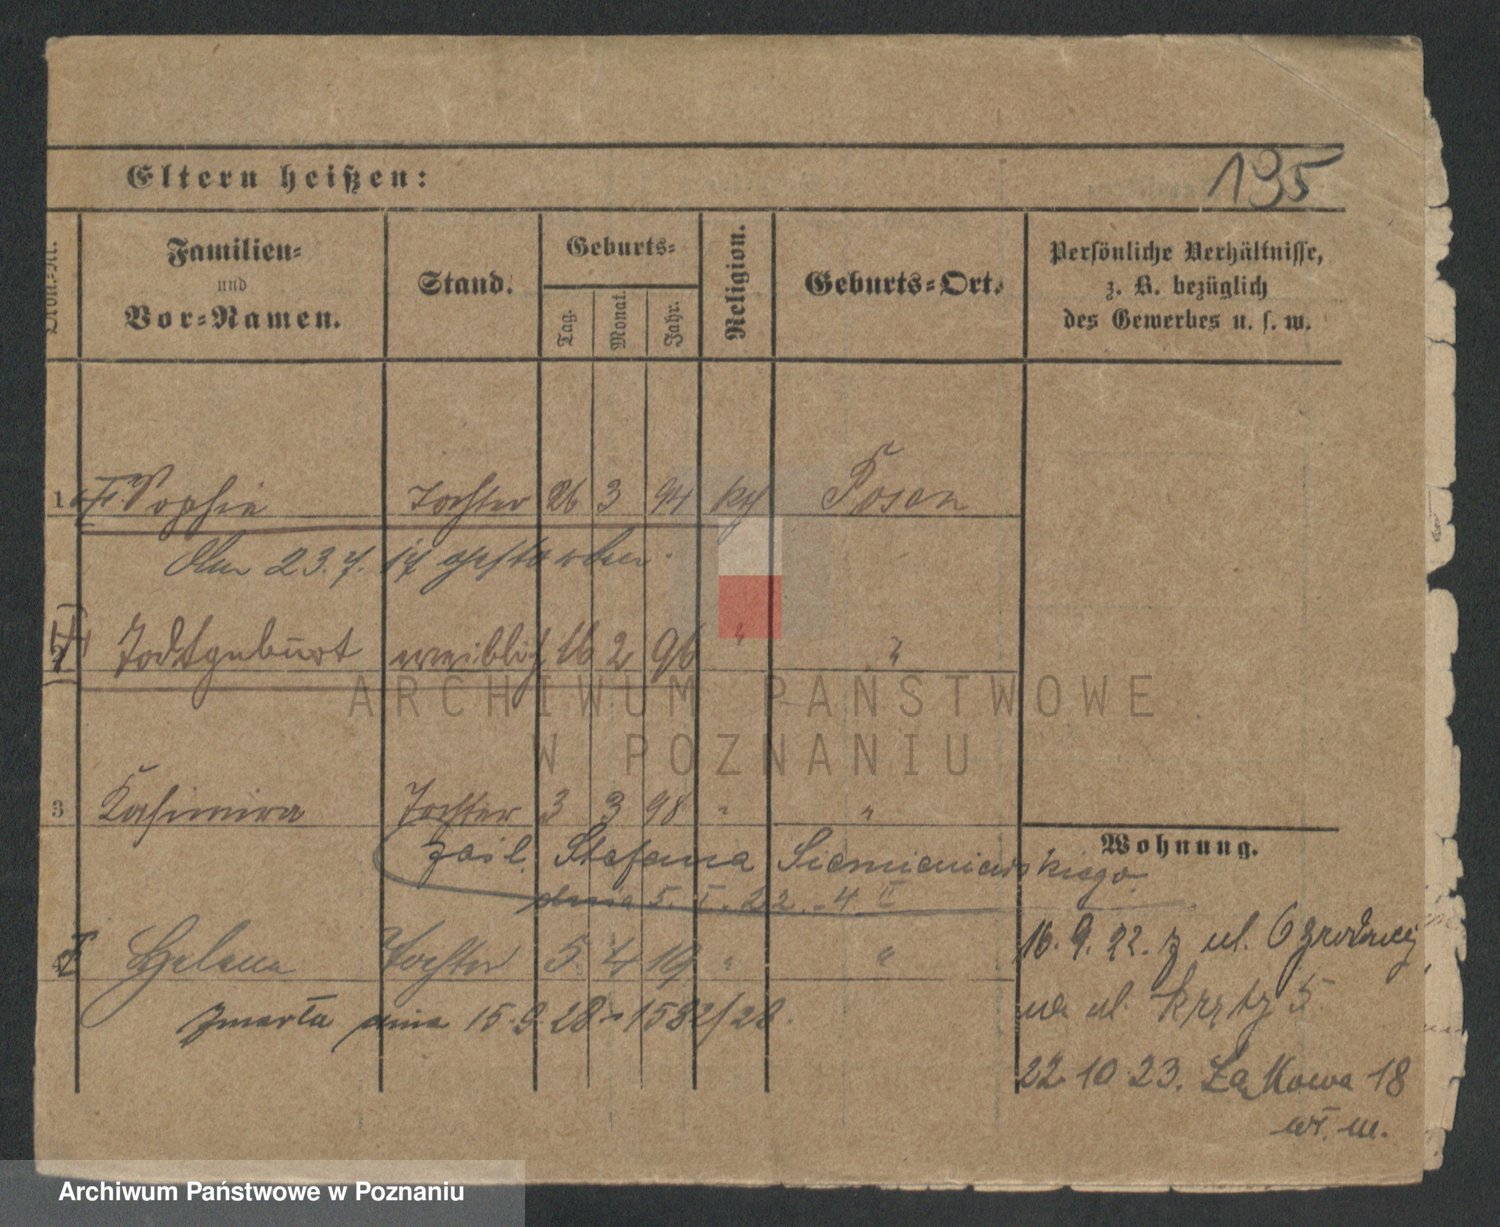 Eltern heißen:
195
Familien-
und
Vor-Namen.
Stand.
Geburts-
Tag.
Monat.
Jahr.
Religion.
Geburts-Ort.
Persönliche Verhältnisse,
z. B. bezüglich
des Gewerbes u. s. w.
1 Sophie Tochter 26 3 94 kth Posen
Am 23.7.17 gestorben.
Todtgeburt weiblich 16 2 96 " "
3 Kasimira Tochter 3 3 98 " "
Stefana Siemieniewskiego
dnia 5. I. 22. - 4. II
Helena Tochter 5 4 19 " "
zmarła dnia 15.9.28 1582/28.
Wohnung.
16.9.22. z ul. Ogrodowej
na ul. 5
22 10 23. Łąkowa 18
wł. m.
ARCHIWUM PAŃSTWOWE
W POZNANIU
Archiwum Państwowe w Poznaniu